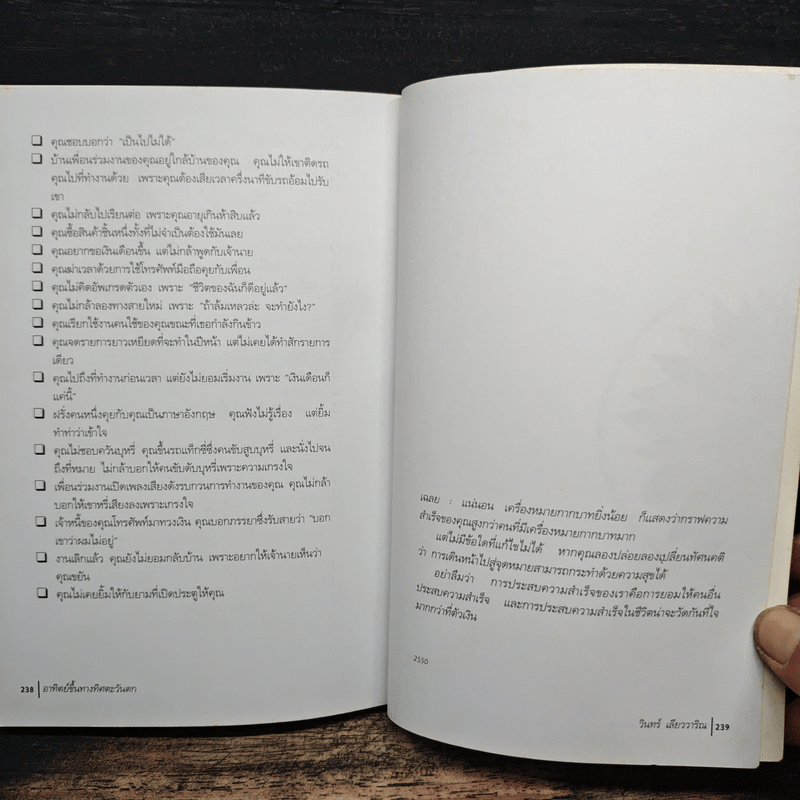 ❑ คุณชอบบอกว่า "เป็นไปไม่ได้"
❑ บ้านเพื่อนร่วมงานของคุณอยู่ใกล้บ้านของคุณ คุณไม่ให้เขาติดรถ
คุณไปที่ทำงานด้วย เพราะคุณต้องเสียเวลาครึ่งนาทีขับรถอ้อมไปรับ
เขา
❑ คุณไม่กลับไปเรียนต่อ เพราะคุณอายุเกินห้าสิบแล้ว
❑ คุณซื้อสินค้าชิ้นหนึ่งทั้งที่ไม่จำเป็นต้องใช้มันเลย
❑ คุณอยากขอเงินเดือนขึ้น แต่ไม่กล้าพูดกับเจ้านาย
❑ คุณฆ่าเวลาด้วยการใช้โทรศัพท์มือถือคุยกับเพื่อน
❑ คุณไม่คิดอัพเกรดตัวเอง เพราะ "ชีวิตของฉันก็ดีอยู่แล้ว"
❑ คุณไม่กล้าลองทางสายใหม่ เพราะ "ถ้าล้มเหลวล่ะ จะทำยังไง?"
❑ คุณเรียกใช้งานคนใช้ของคุณขณะที่เธอกำลังกินข้าว
❑ คุณจดรายการยาวเหยียดที่จะทำในปีหน้า แต่ไม่เคยได้ทำสักรายการ
เดียว
❑ คุณไปถึงที่ทำงานก่อนเวลา แต่ยังไม่ยอมเริ่มงาน เพราะ "เงินเดือนก็
แค่นี้"
❑ ฝรั่งคนหนึ่งคุยกับคุณเป็นภาษาอังกฤษ คุณฟังไม่รู้เรื่อง แต่ยิ้ม
ทำท่าว่าเข้าใจ
❑ คุณไม่ชอบควันบุหรี่ คุณขึ้นรถแท็กซี่ซึ่งคนขับสูบบุหรี่ และนั่งไปจน
ถึงที่หมาย ไม่กล้าบอกให้คนขับดับบุหรี่เพราะความเกรงใจ
❑ เพื่อนร่วมงานเปิดเพลงเสียงดังรบกวนการทำงานของคุณ คุณไม่กล้า
บอกให้เขาหรี่เสียงลงเพราะเกรงใจ
❑ เจ้าหนี้ของคุณโทรศัพท์มาทวงเงิน คุณบอกภรรยาซึ่งรับสายว่า "บอก
เขาว่าผมไม่อยู่"
❑ งานเลิกแล้ว คุณยังไม่ยอมกลับบ้าน เพราะอยากให้เจ้านายเห็นว่า
คุณขยัน
❑ คุณไม่เคยยิ้มให้กับยามที่เปิดประตูให้คุณ
238 | อาทิตย์ขึ้นทางทิศตะวันตก
เฉลย : แน่นอน เครื่องหมายกากบาทยิ่งน้อย ก็แสดงว่ากราฟความ
สำเร็จของคุณสูงกว่าคนที่มีเครื่องหมายกากบาทมาก
แต่ไม่มีข้อใดที่แก้ไขไม่ได้ หากคุณลองปล่อยลองเปลี่ยนทัศนคติ
ว่า การเดินหน้าไปสู่จุดหมายสามารถกระทำด้วยความสุขได้
อย่าลืมว่า การประสบความสำเร็จของเราคือการยอมให้คนอื่น
ประสบความสำเร็จ และการประสบความสำเร็จในชีวิตน่าจะวัดกันที่ใจ
มากกว่าที่ตัวเงิน
2550
วินทร์ เลียววาริณ | 239